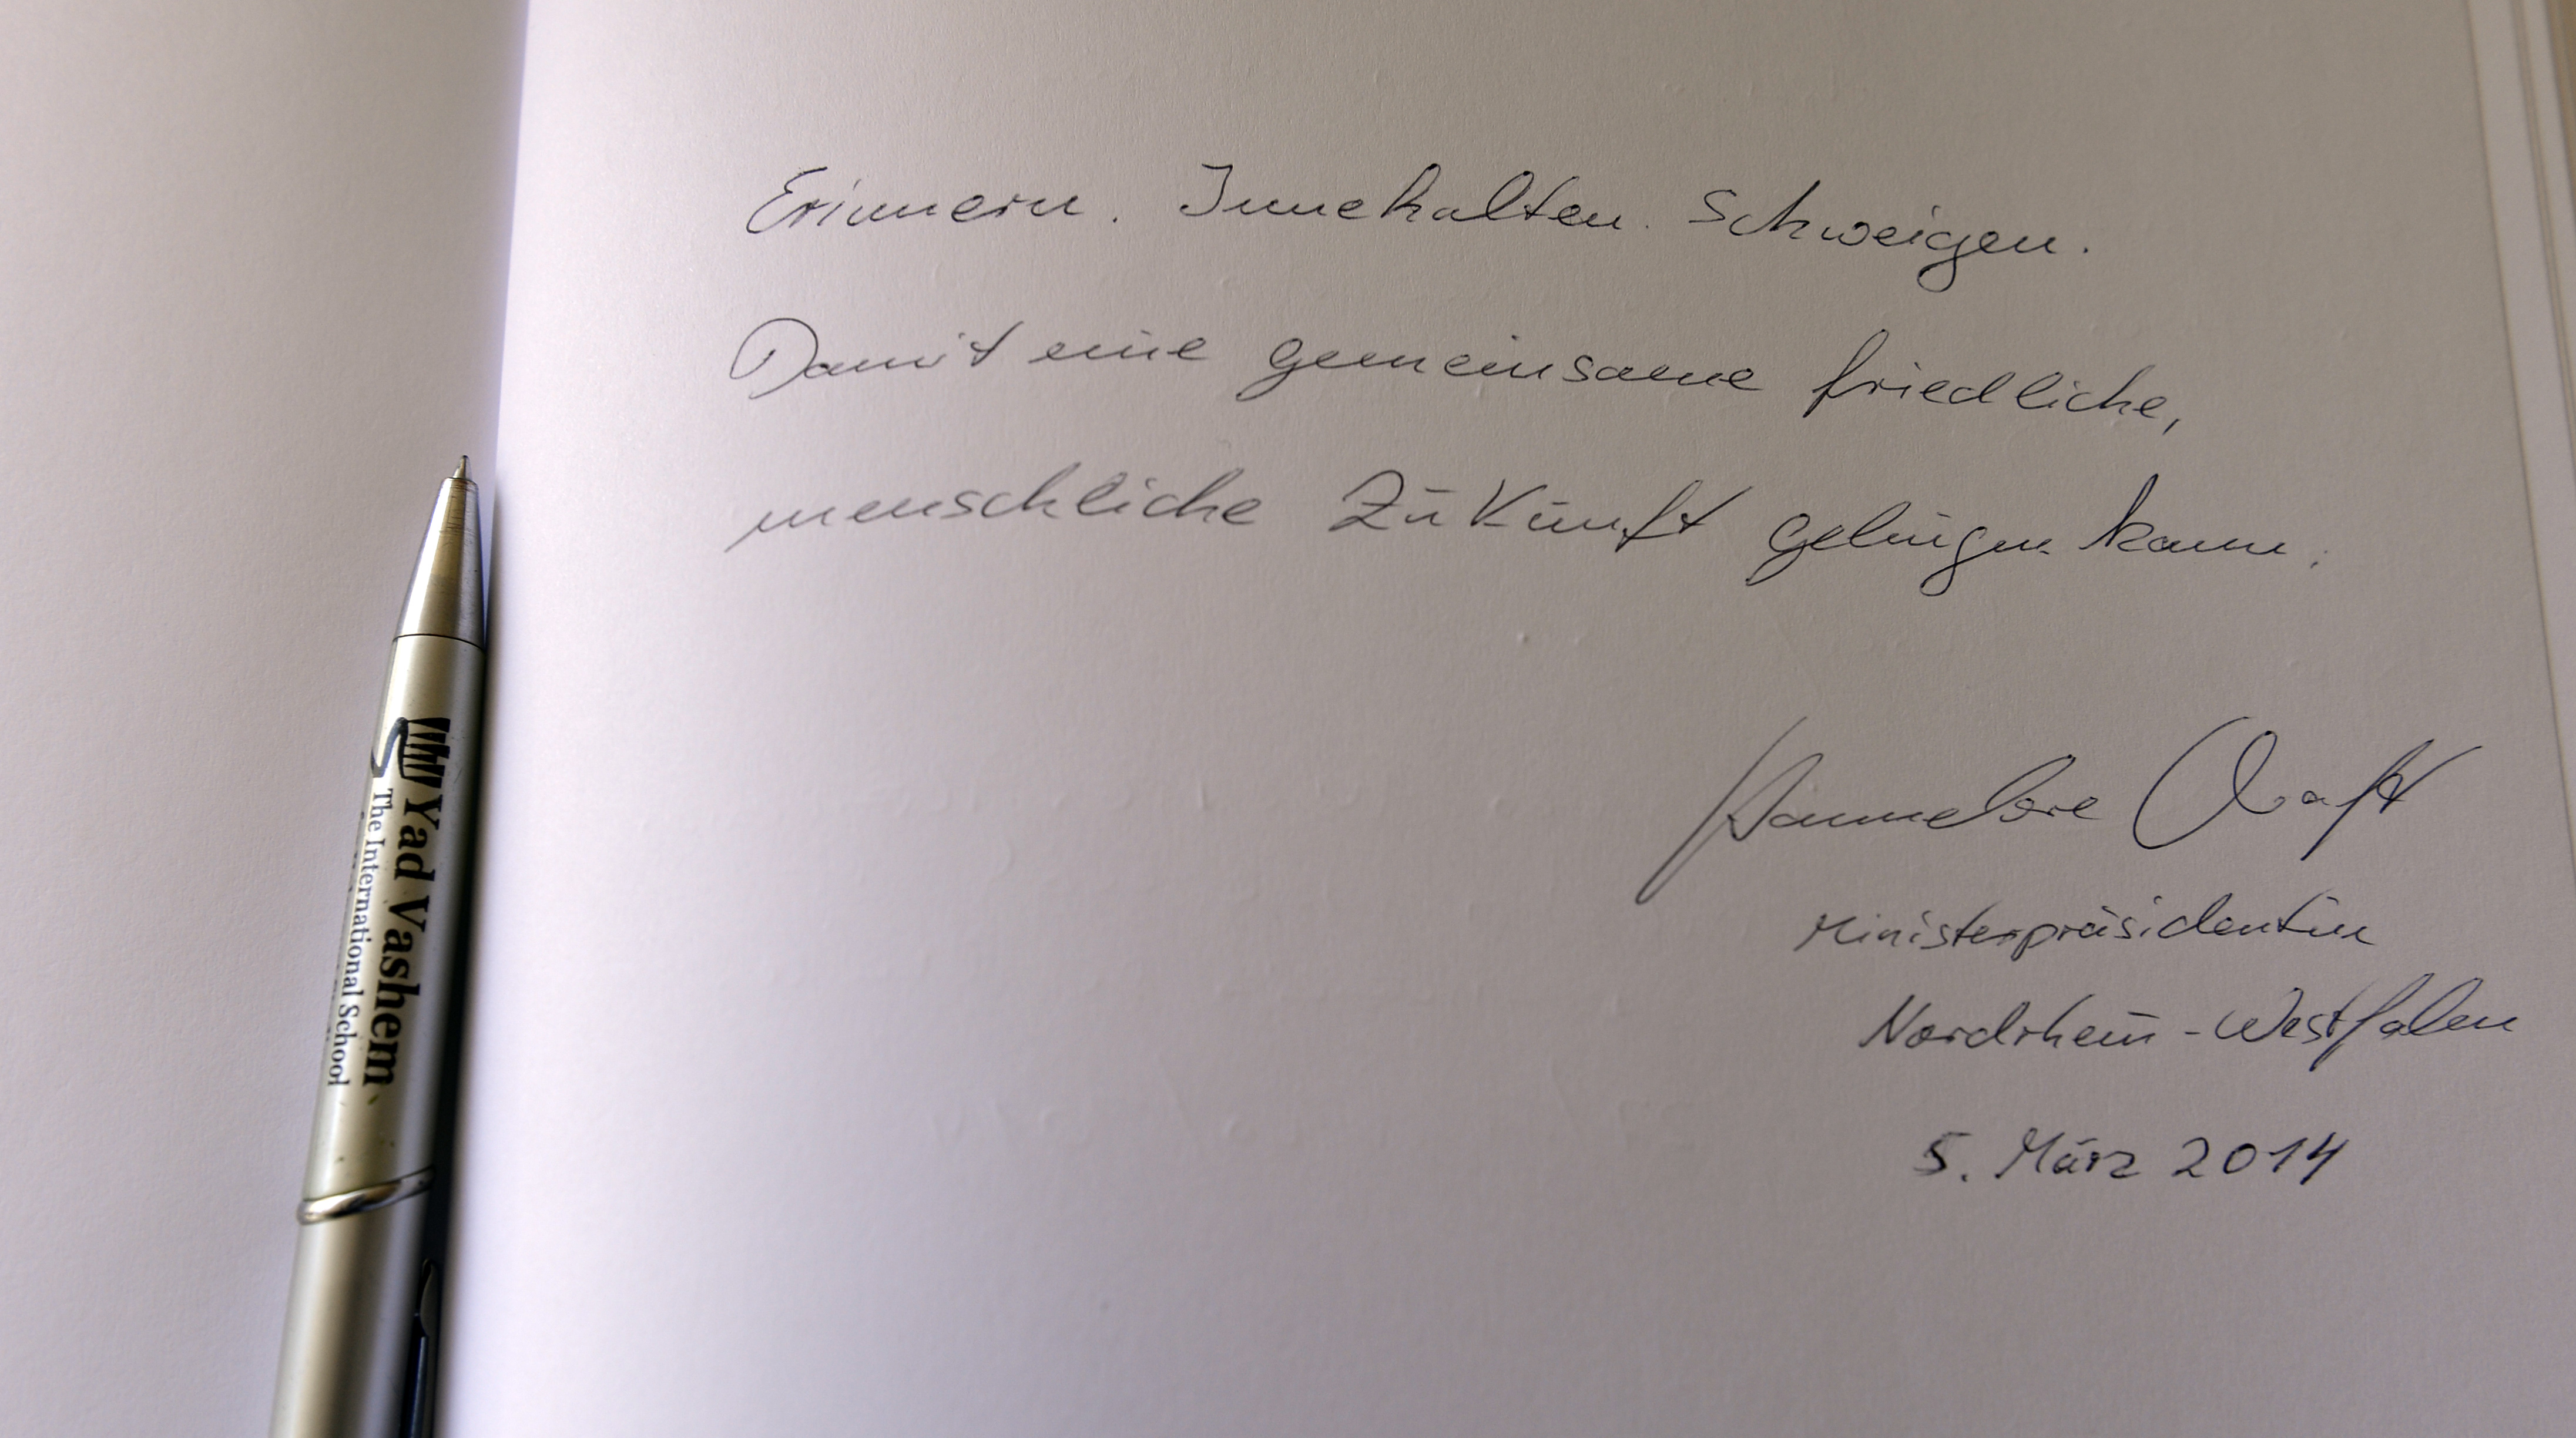 Erinnern. Innehalten. Schweigen.
Damit eine gemeinsame friedliche,
menschliche Zukunft gelingen kann.
Hannelore Kraft
Ministerpräsidentin
Nordrhein-Westfalen
5. März 2014
Yad Vashem
The International School